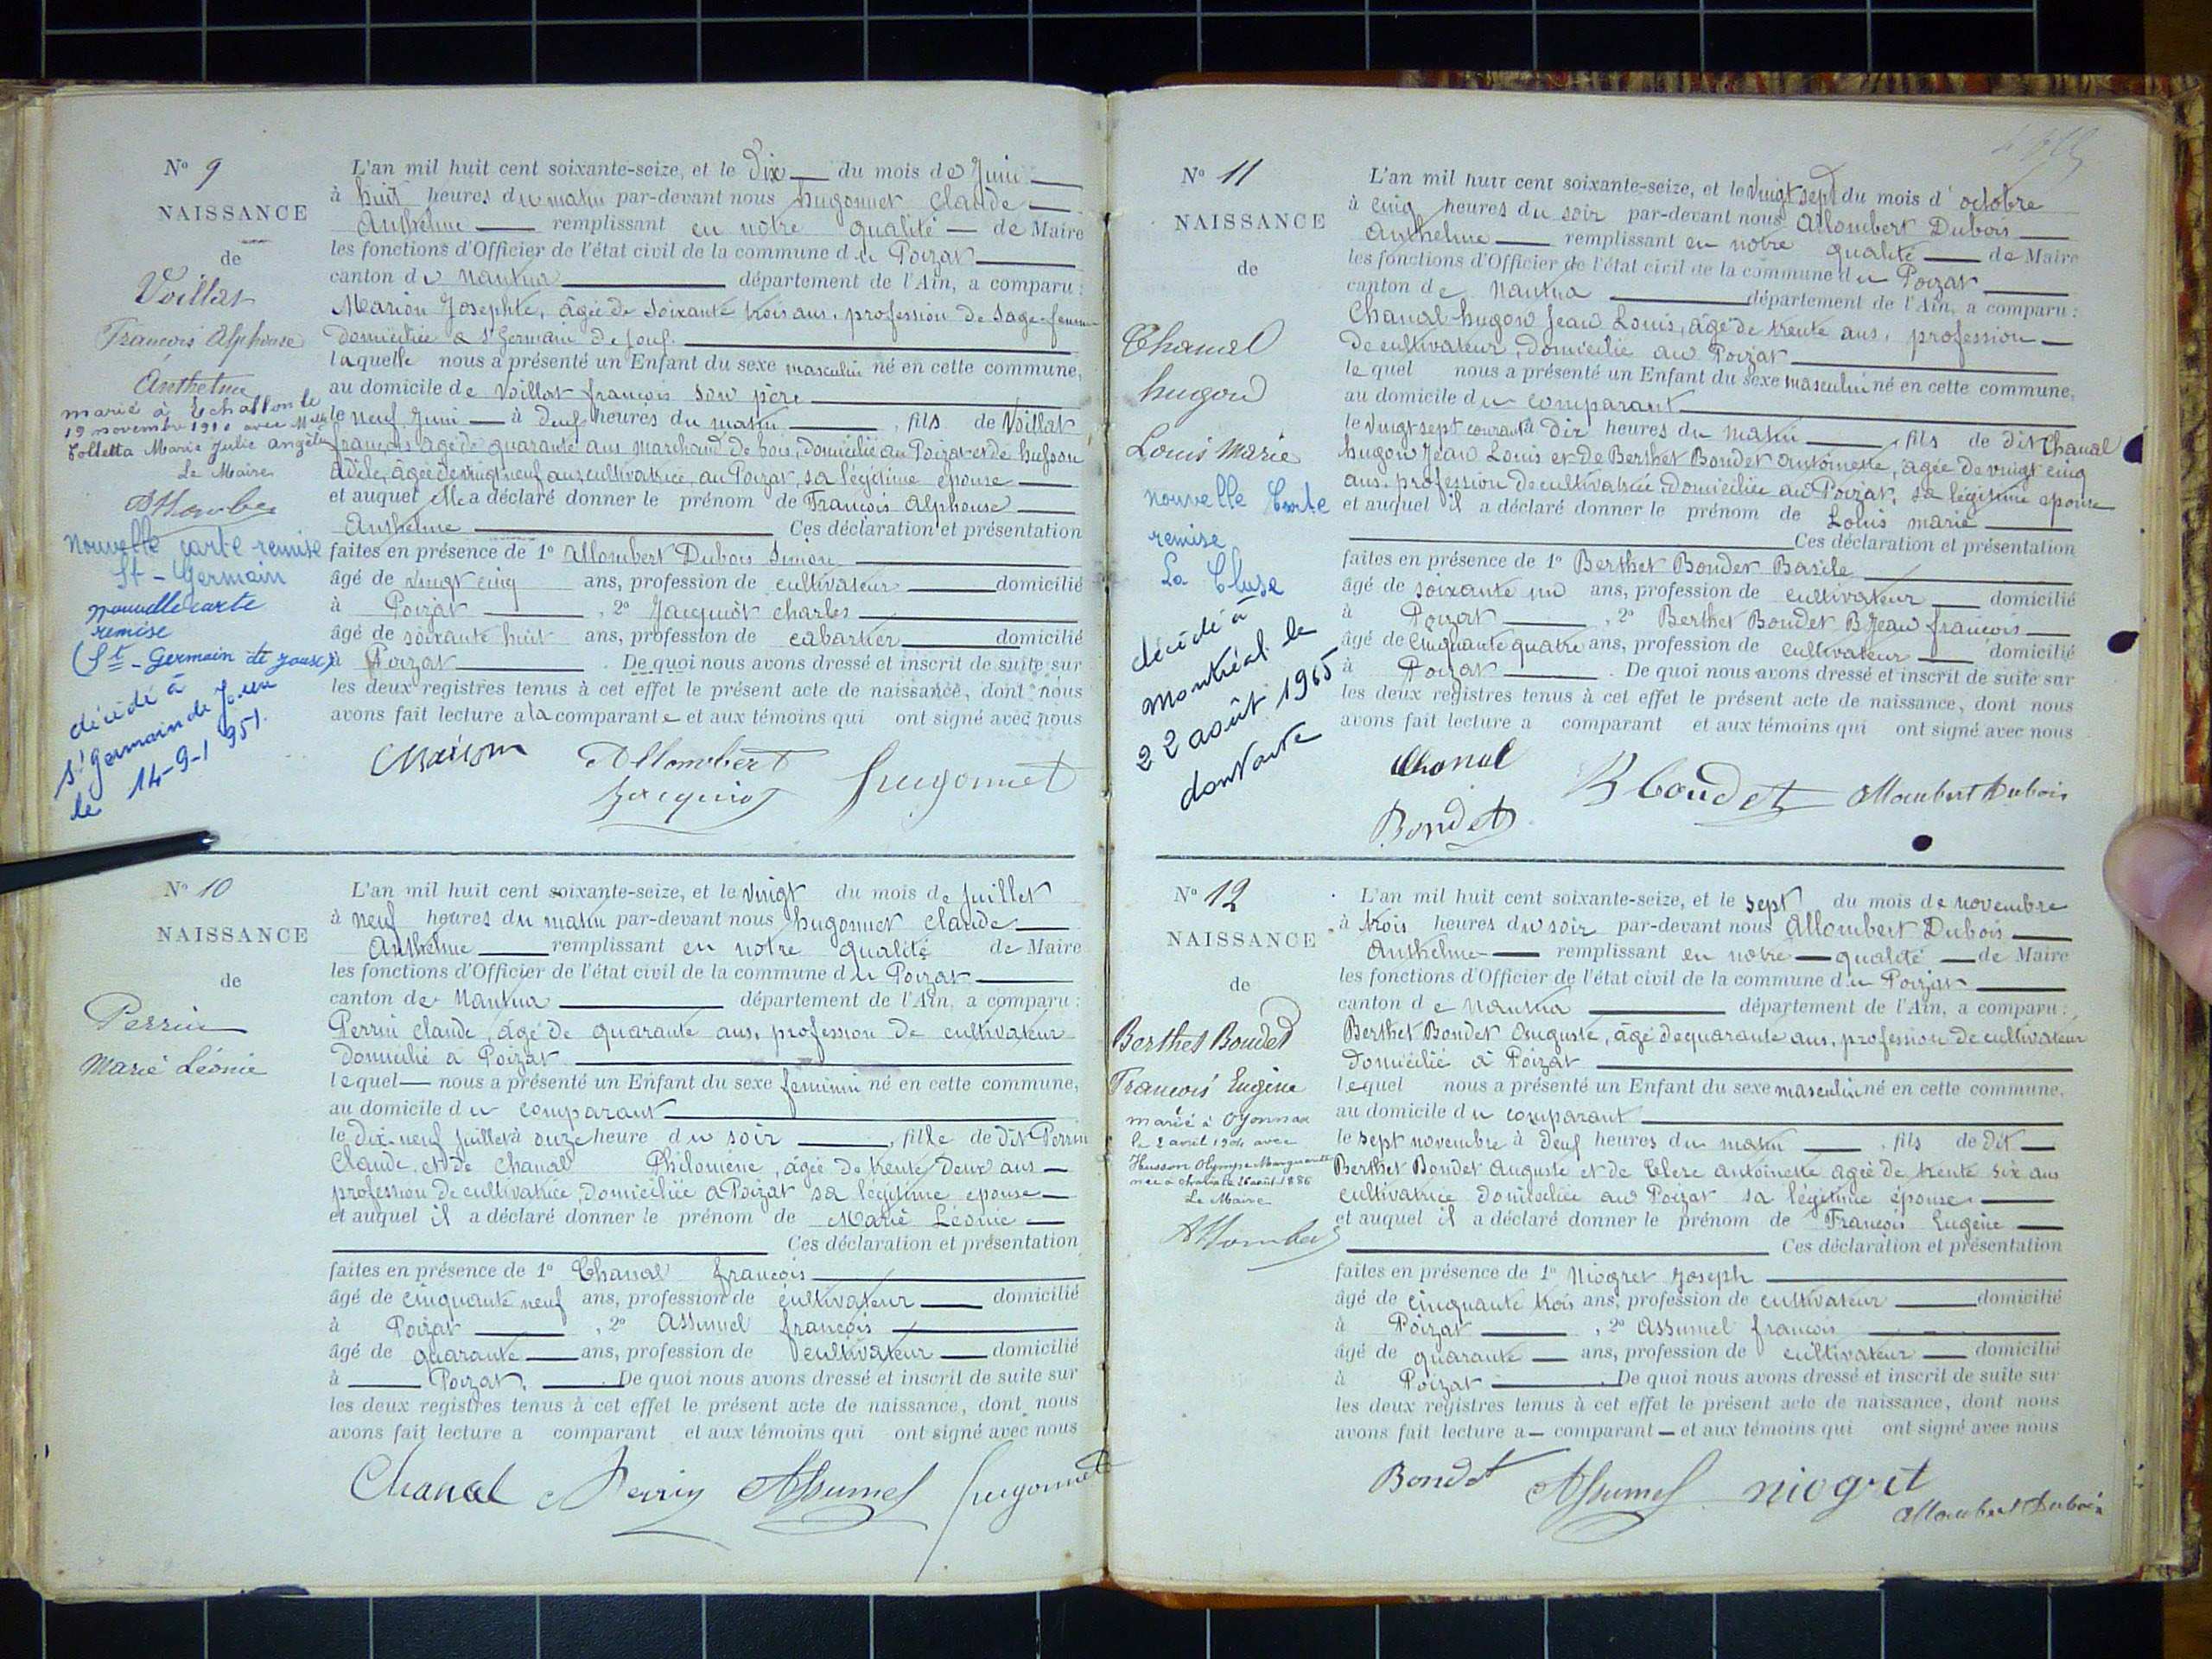 N° 9
NAISSANCE
de
Voillat
François Alphonse
Anthelme
marié à Echallon le
19 novembre 1910 avec Melle
Colletta Marie Julie angèle
Le Maire
Nouvelle carte remise
St-Germain
nouvelle carte
remise
(St-Germain de Joux)
décédé à
St Germain de Joux
le 14-9-1951.
L'an mil huit cent soixante-seize, et le Dix du mois de Juin
à huit heures du matin par-devant nous hugonnet Claude
Anthelme remplissant en nôtre qualité de Maire
les fonctions d'Officier de l'état civil de la commune du Poizat
canton de Nantua département de l'Ain, a comparu :
Marion Josephte, âgée de soixante trois ans, profession de Sage-femme
Domiciliée à St Germain de Joux.
laquelle nous a présenté un Enfant du sexe masculin né en cette commune,
au domicile de Voillat françois son père
le neuf Juin à deux heures du matin, fils de Voillat
françois âgé de quarante ans marchand de bois, domicilié au Poizat et de husson
Adèle, âgée de vingt neuf ans cultivatrice, au Poizat, sa légitime épouse
et auquel elle a déclaré donner le prénom de François Alphonse
Anthelme Ces déclaration et présentation
faites en présence de 1° Allombert Dubois Simon
âgé de vingt cinq ans, profession de cultivateur domicilié
à Poizat, 2° Jacquiot Charles
âgé de soixante huit ans, profession de cabartier domicilié
à Poizat. De quoi nous avons dressé et inscrit de suite sur
les deux registres tenus à cet effet le présent acte de naissance, dont nous
avons fait lecture a la comparante et aux témoins qui ont signé avec nous
Marion Allombert
Jacquiot hugonnet
N° 10
NAISSANCE
de
Perrin
Marie Léonie
L'an mil huit cent soixante-seize, et le vingt du mois de Juillet
à neuf heures du matin par-devant nous hugonnet Claude
Anthelme remplissant en notre qualité de Maire
les fonctions d'Officier de l'état civil de la commune du Poizat
canton de Nantua département de l'Ain, a comparu :
Perrin Claude, âgé de quarante ans, profession de cultivateur
Domicilié à Poizat
lequel nous a présenté un Enfant du sexe feminin né en cette commune,
au domicile du comparant
le dix-neuf Juillet à onze heure du soir, fille de Dit Perrin
Claude et de Chanal Philomène, âgée de trente deux ans
profession de cultivatrice, domiciliée à Poizat sa légitime epouse
et auquel il a déclaré donner le prénom de Marie Léonie
Ces déclaration et présentation
faites en présence de 1° Chanal françois
âgé de cinquante neuf ans, profession de cultivateur domicilié
à Poizat, 2° Assumel françois
âgé de quarante ans, profession de cultivateur domicilié
à Poizat. De quoi nous avons dressé et inscrit de suite sur
les deux registres tenus à cet effet le présent acte de naissance, dont nous
avons fait lecture a comparant et aux témoins qui ont signé avec nous
Chanal Perrin Assumel hugonnet
N° 11
NAISSANCE
de
Chanal
hugon
Louis Marie
nouvelle Carte
remise
La Cluse
décédé à
Montréal le
22 août 1965
L'an mil huit cent soixante-seize, et le vingt sept du mois d'octobre
à cinq heures du soir par-devant nous Allombert Dubois
Anthelme remplissant en notre qualité de Maire
les fonctions d'Officier de l'état civil de la commune du Poizat
canton de Nantua département de l'Ain, a comparu :
Chanal-hugon Jean Louis, âgé de trente ans, profession
De cultivateur, Domicilié au Poizat
lequel nous a présenté un Enfant du sexe masculin né en cette commune,
au domicile du comparant
le vingt sept courant à Dix heures du matin, fils de dit Chanal
hugon Jean Louis et de Berthet Bondet Antoinette, âgée de vingt cinq
ans, profession de cultivatrice, Domiciliée au Poizat, sa légitime epouse
et auquel il a déclaré donner le prénom de Louis marie
Ces déclaration et présentation
faites en présence de 1° Berthet Bondet Basile
âgé de soixante un ans, profession de cultivateur domicilié
à Poizat, 2° Berthet Bondet B Jean françois
âgé de Cinquante quatre ans, profession de cultivateur domicilié
à Poizat. De quoi nous avons dressé et inscrit de suite sur
les deux registres tenus à cet effet le présent acte de naissance, dont nous
avons fait lecture a comparant et aux témoins qui ont signé avec nous
Chanal B bondet Allombert Dubois
Bondet
N° 12
NAISSANCE
de
Berthet Bondet
François Eugène
marié à Oyonnax
le 2 avril 1904 avec
Husson Olympe Marguerite
née à 26 août 1886
Le Maire
L'an mil huit cent soixante-seize, et le sept du mois de novembre
à trois heures du soir par-devant nous Allombert Dubois
Anthelme remplissant en notre qualité de Maire
les fonctions d'Officier de l'état civil de la commune du Poizat
canton de Nantua département de l'Ain, a comparu :
Berthet Bondet Auguste, âgé de quarante ans, profession de cultivateur
Domicilié à Poizat
lequel nous a présenté un Enfant du sexe masculin né en cette commune,
au domicile du comparant
le sept novembre à Deux heures du matin, fils de dit
Berthet Bondet Auguste et de Clerc Antoinette agée de trente six ans
cultivatrice domiciliée au Poizat sa légitime épouse
et auquel il a déclaré donner le prénom de François Eugène
Ces déclaration et présentation
faites en présence de 1° Niogret Joseph
âgé de cinquante trois ans, profession de cultivateur domicilié
à Poizat, 2° Assumel françois
âgé de quarante ans, profession de cultivateur domicilié
à Poizat De quoi nous avons dressé et inscrit de suite sur
les deux registres tenus à cet effet le présent acte de naissance, dont nous
avons fait lecture a comparant et aux témoins qui ont signé avec nous
Bondet Assumel niogret
Allombert Dubois